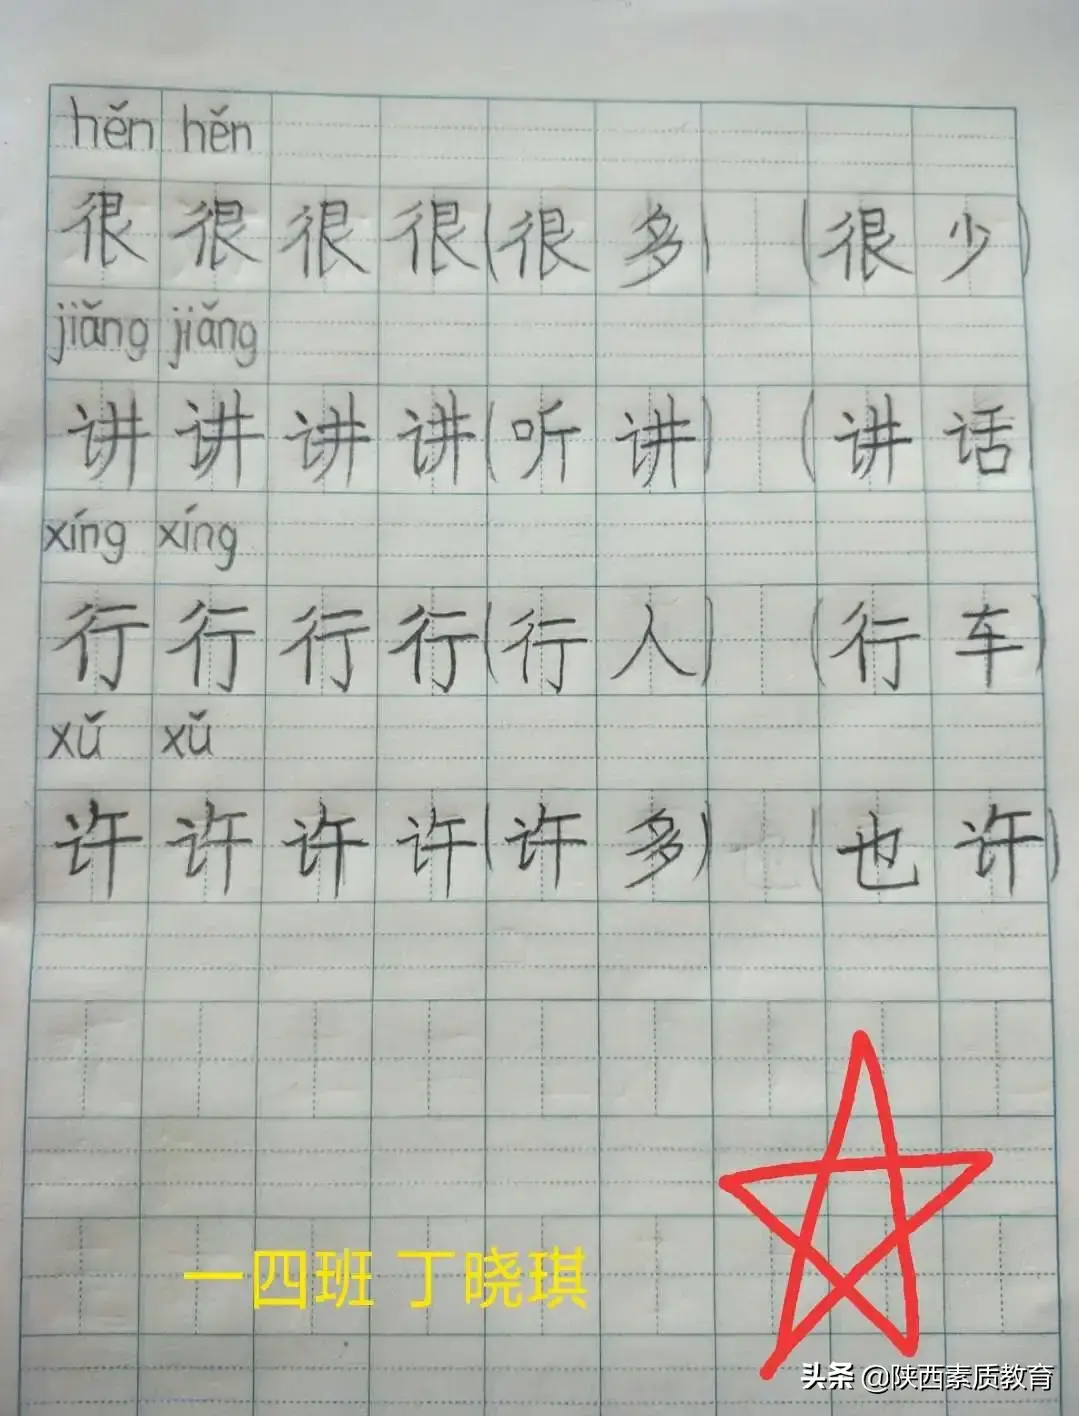 hěn hěn
很 很 很 很 (很 多) (很 少)
jiǎng jiǎng
讲 讲 讲 讲 (听 讲) (讲 话)
xíng xíng
行 行 行 行 (行 人) (行 车)
xǔ xǔ
许 许 许 许 (许 多) (也 许)
一四班 丁晓琪
头条 @陕西素质教育